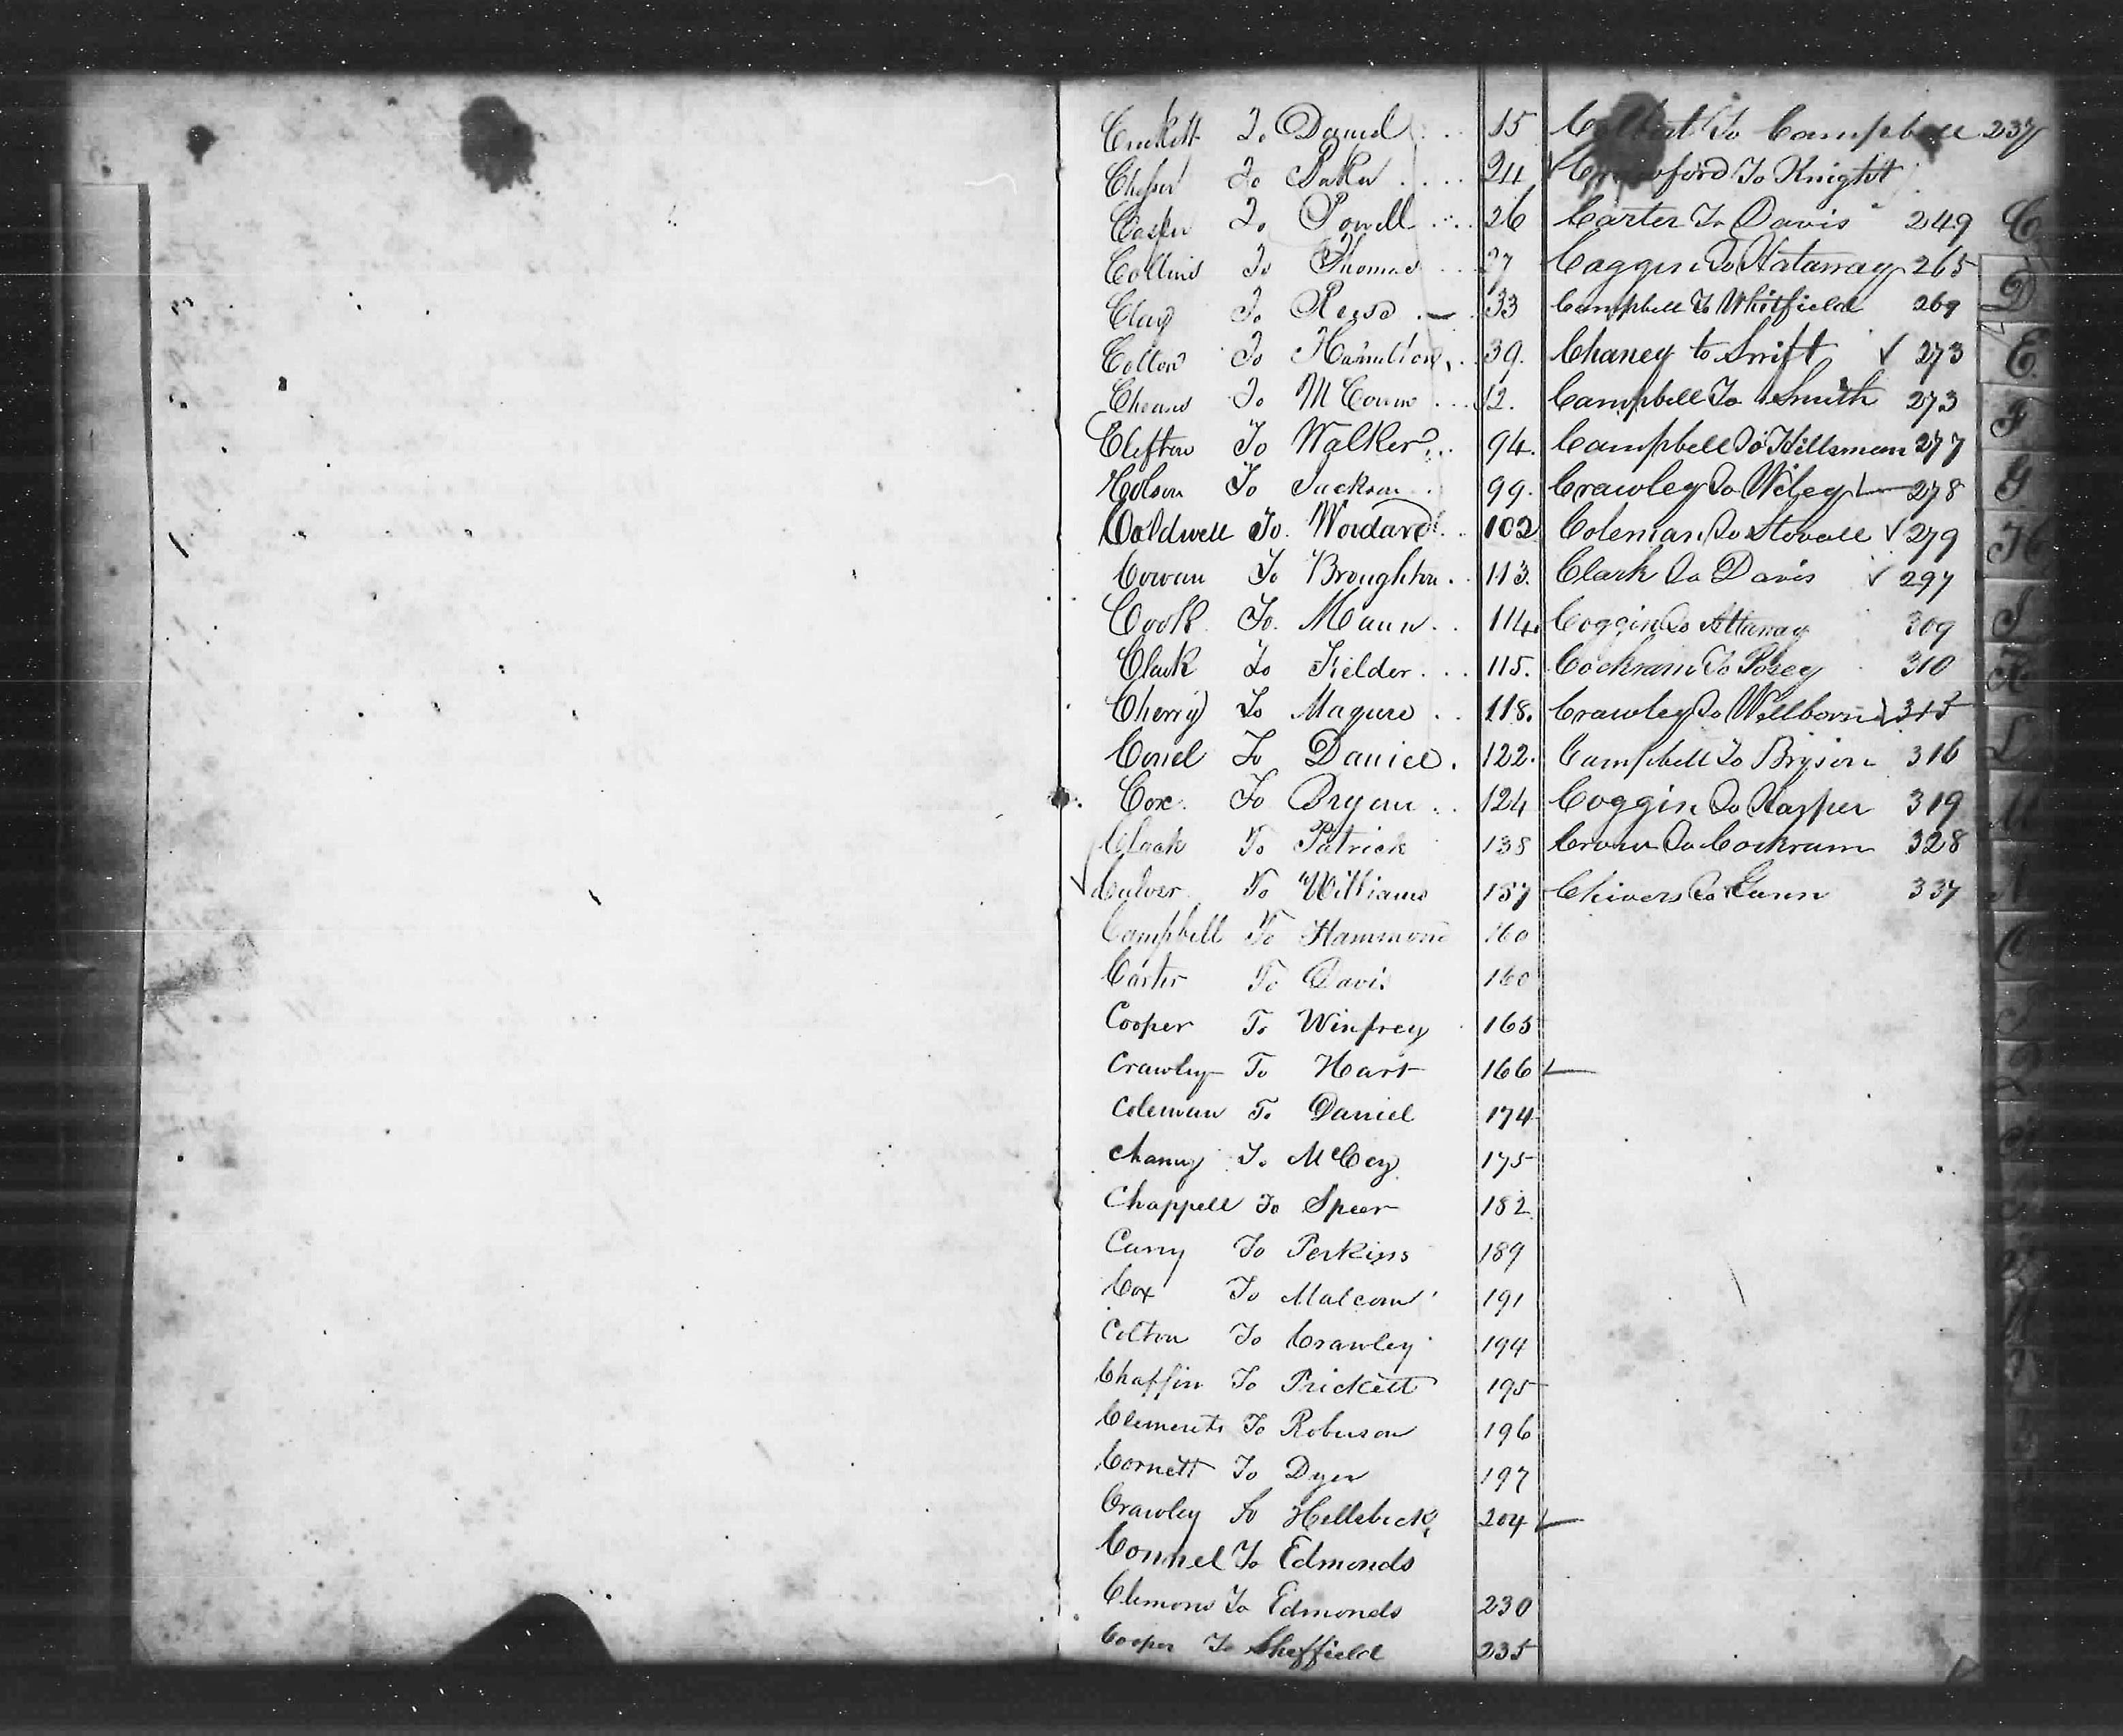 Crockett To Daniel 15
To 24
To Powell 26
Collins To Thomas 27
Clay To Reese 33
Colton To Hamilton 39.
To McCoun 42.
Clifton To Walker 94.
To Jackson 99.
Caldwell To. Woodard 102
Cowan To Broughton 113.
Cook To. Mann 114.
Clark To Fielder 115.
Cherry To Maguire 118.
To Daniel 122.
Cox To Bryan 124
Clack To Patrick 138
Culver To Williams 157
Campbell To Hammond 160
Carter To Davis 160
Cooper To Winfrey 165
Crawley To Hart 166
Coleman To Daniel 174
Chaney To McCoy 175
Chappell To Speer 182
Curry To Perkins 189
Cox To Malcom 191
Colton To Crawley 194
Chaffin To Prickett 195
Clements To Roberson 196
Cornett To Dyer 197
Crawley To 204
Connel To Edmonds
Clemons To Edmonds 230
Cooper To Sheffield 235
Colbert To Campbell 237
Crawford To Knight
Carter To Davis 249
Coggin To Hataway 265
Campbell To Whitfield 269
Chaney to Swift ✓ 273
Campbell To Smith 273
Campbell To Hillsman 277
Crawley To Wiley 278
Coleman To Stovall ✓ 279
Clark To Davis ✓ 297
Coggin To Attaway 309
Cochran To Posey 310
Crawley To Wellborn 315
Campbell To Bryson 316
Coggin To Harper 319
Crow To Cockrum 328
Chivers To Gunn 337
C
D
E
F
G
H
I
K
L
M
N
O
P
Q